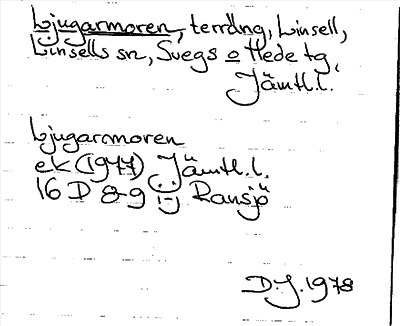 Ljugarmoren, terräng, Linsell,
Linsells sn, Svegs o Hede tg,
Jämtl.l.
Ljugarmoren
ek (1977) Jämtl.l.
16 D 8-9 i-j Ransjö
D.J. 1978